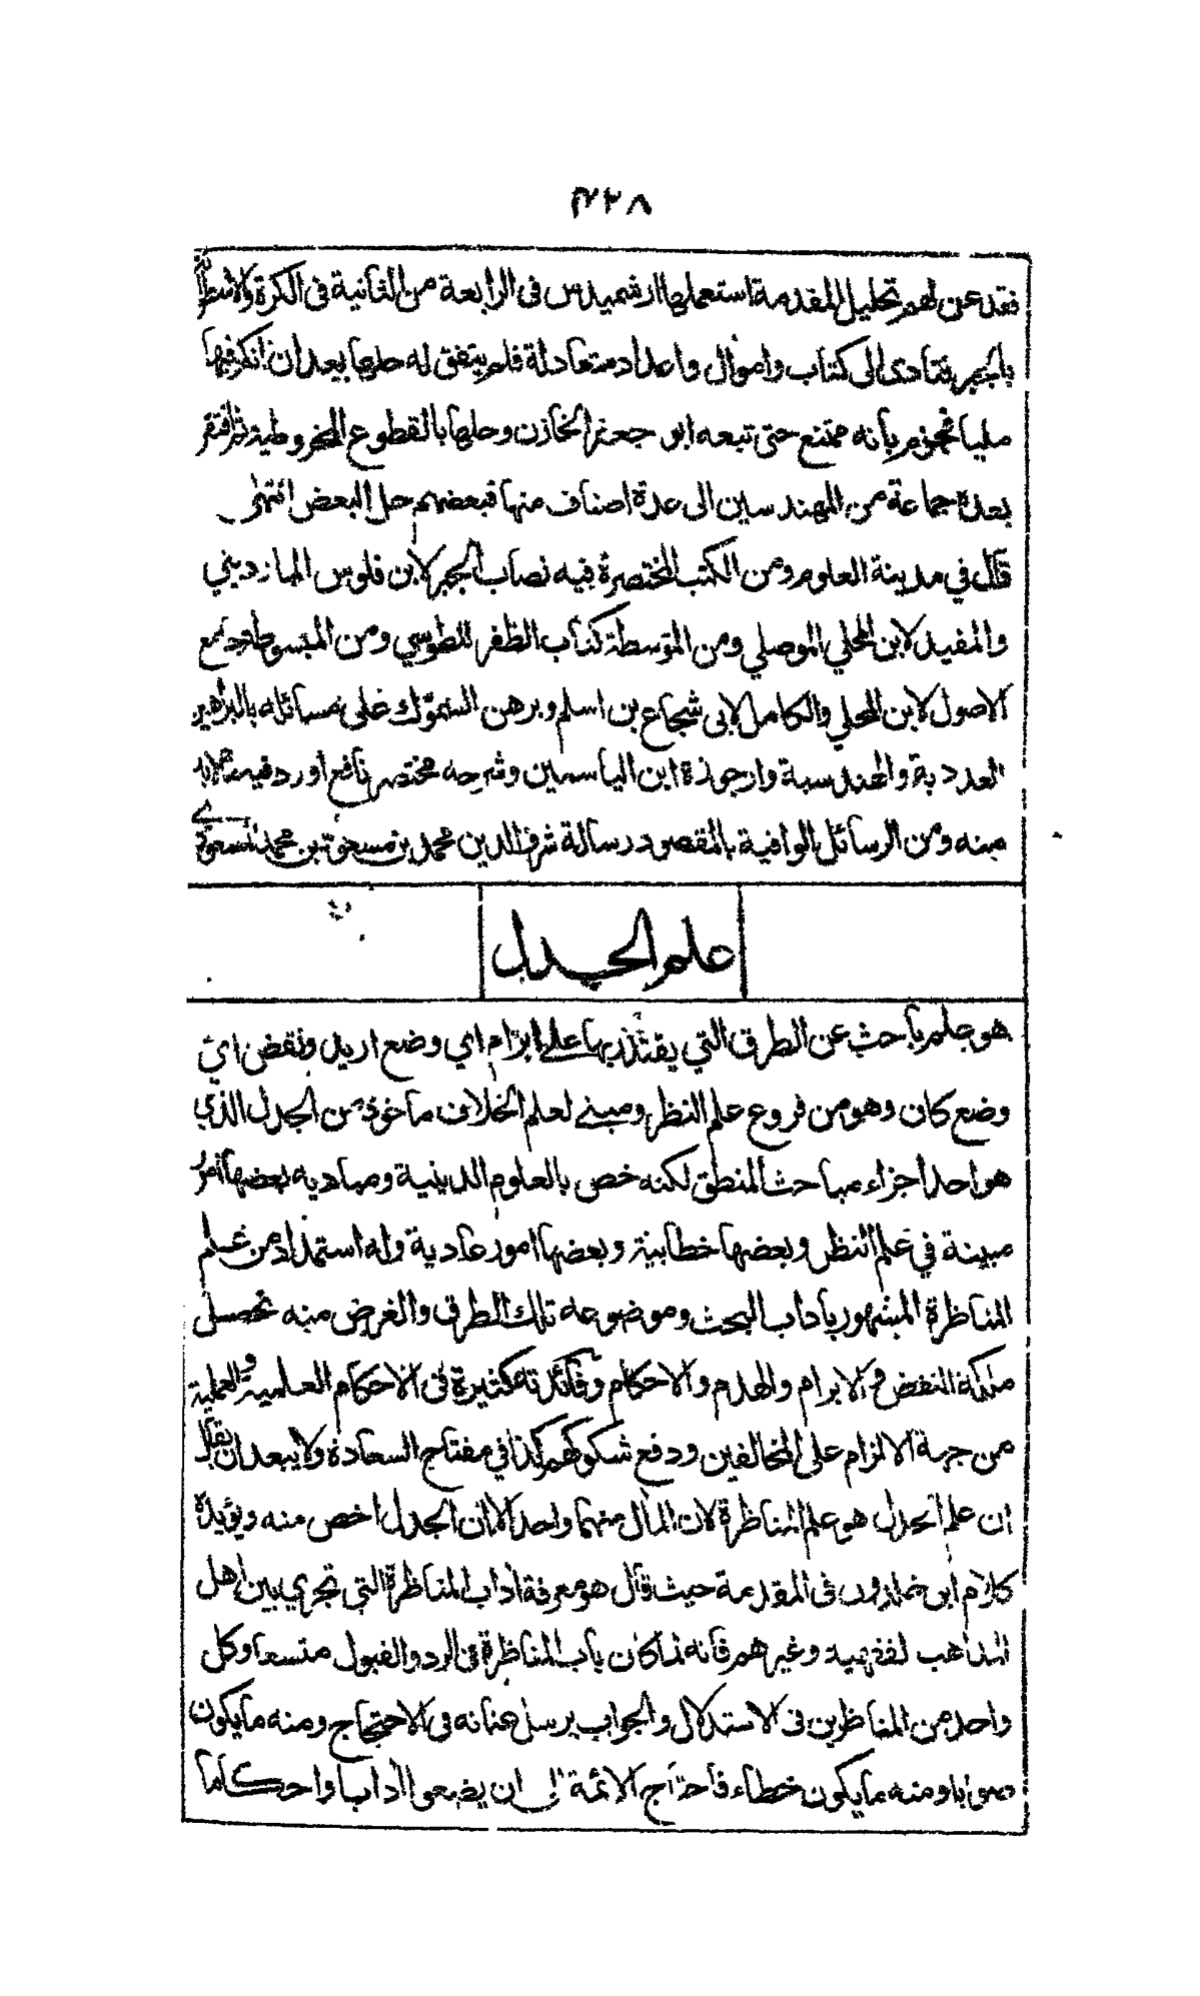 ٣٢٨
فقد عن لهم تحليل المقدمة استعملها ارشميدس فى الرابعة من الثانية فى الكرة والاسطوانة
بالجبر فتادى الى كتاب واموال واعداد متعادلة فلم يتفق له حلها بعد ان افكر فيها
مليا فجزم بانه ممتنع حتى تبعه ابو جعفر الخازن وحلها بالقطوع المخروطية ثم افتقر
بعده جماعة من المهندسين الى عدة اصناف منها فبعضهم حل البعض انتهى
قال في مدينة العلوم ومن الكتب المختصرة فيه نصاب الجبر لابن فلوس المارديني
والمفيد لابن المحلي الموصلي ومن المتوسطة كتاب الظفر للطوسي ومن المبسوطة جامع
الاصول لابن المحلي والكامل لابى شجاع بن اسلم وبرهن السموٴل على مسائله بالبراهين
العددية والهندسية وارجوزة ابن الياسمين وشرحه مختصر نافع اورد فيه ما لابد
منه ومن الرسائل الوافية بالمقصود رسالة شرف الدين محمد بن مسعود بن محمد المسعودي
علم الجدل
هو علم باحث عن الطرق التي يقتدر بها على ابرام اي وضع اريد ونقض اي
وضع كان وهو من فروع علم النظر ومبنى لعلم الخلاف ماخوذ من الجدل الذي
هو احد اجزاء مباحث المنطق لكنه خص بالعلوم الدينية ومباديه بعضها امور
مبينة في علم النظر وبعضها خطابية وبعضها امور عادية وله استمداد من علم
المناظرة المشهور باداب البحث وموضوعه تلك الطرق والغرض منه تحصيل
ملكة النقض و الابرام والهدم والاحكام وفائدته كثيرة فى الاحكام العلمية والعملية
من جهة الالزام على المخالفين ودفع شكوكهم كذا في مفتاح السعادة ولا يبعد ان يقال
ان علم الجدل هو علم المناظرة لان المال منهما واحد الا ان الجدل اخص منه ويؤيده
كلام ابن خلدون فى المقدمة حيث قال هو معرفة اداب المناظرة التى تجري بين اهل
المذاهب لفقهية وغيرهم فانه لما كان باب المناظرة فى الرد والقبول متسعا وكل
واحد من المناظرين فى الاستدلال والجواب يرسل عنانه فى الاحتجاج ومنه ما يكون
صوابا ومنه ما يكون خطاء فاحتاج الائمة الى ان يضعوا ادابا واحكاما